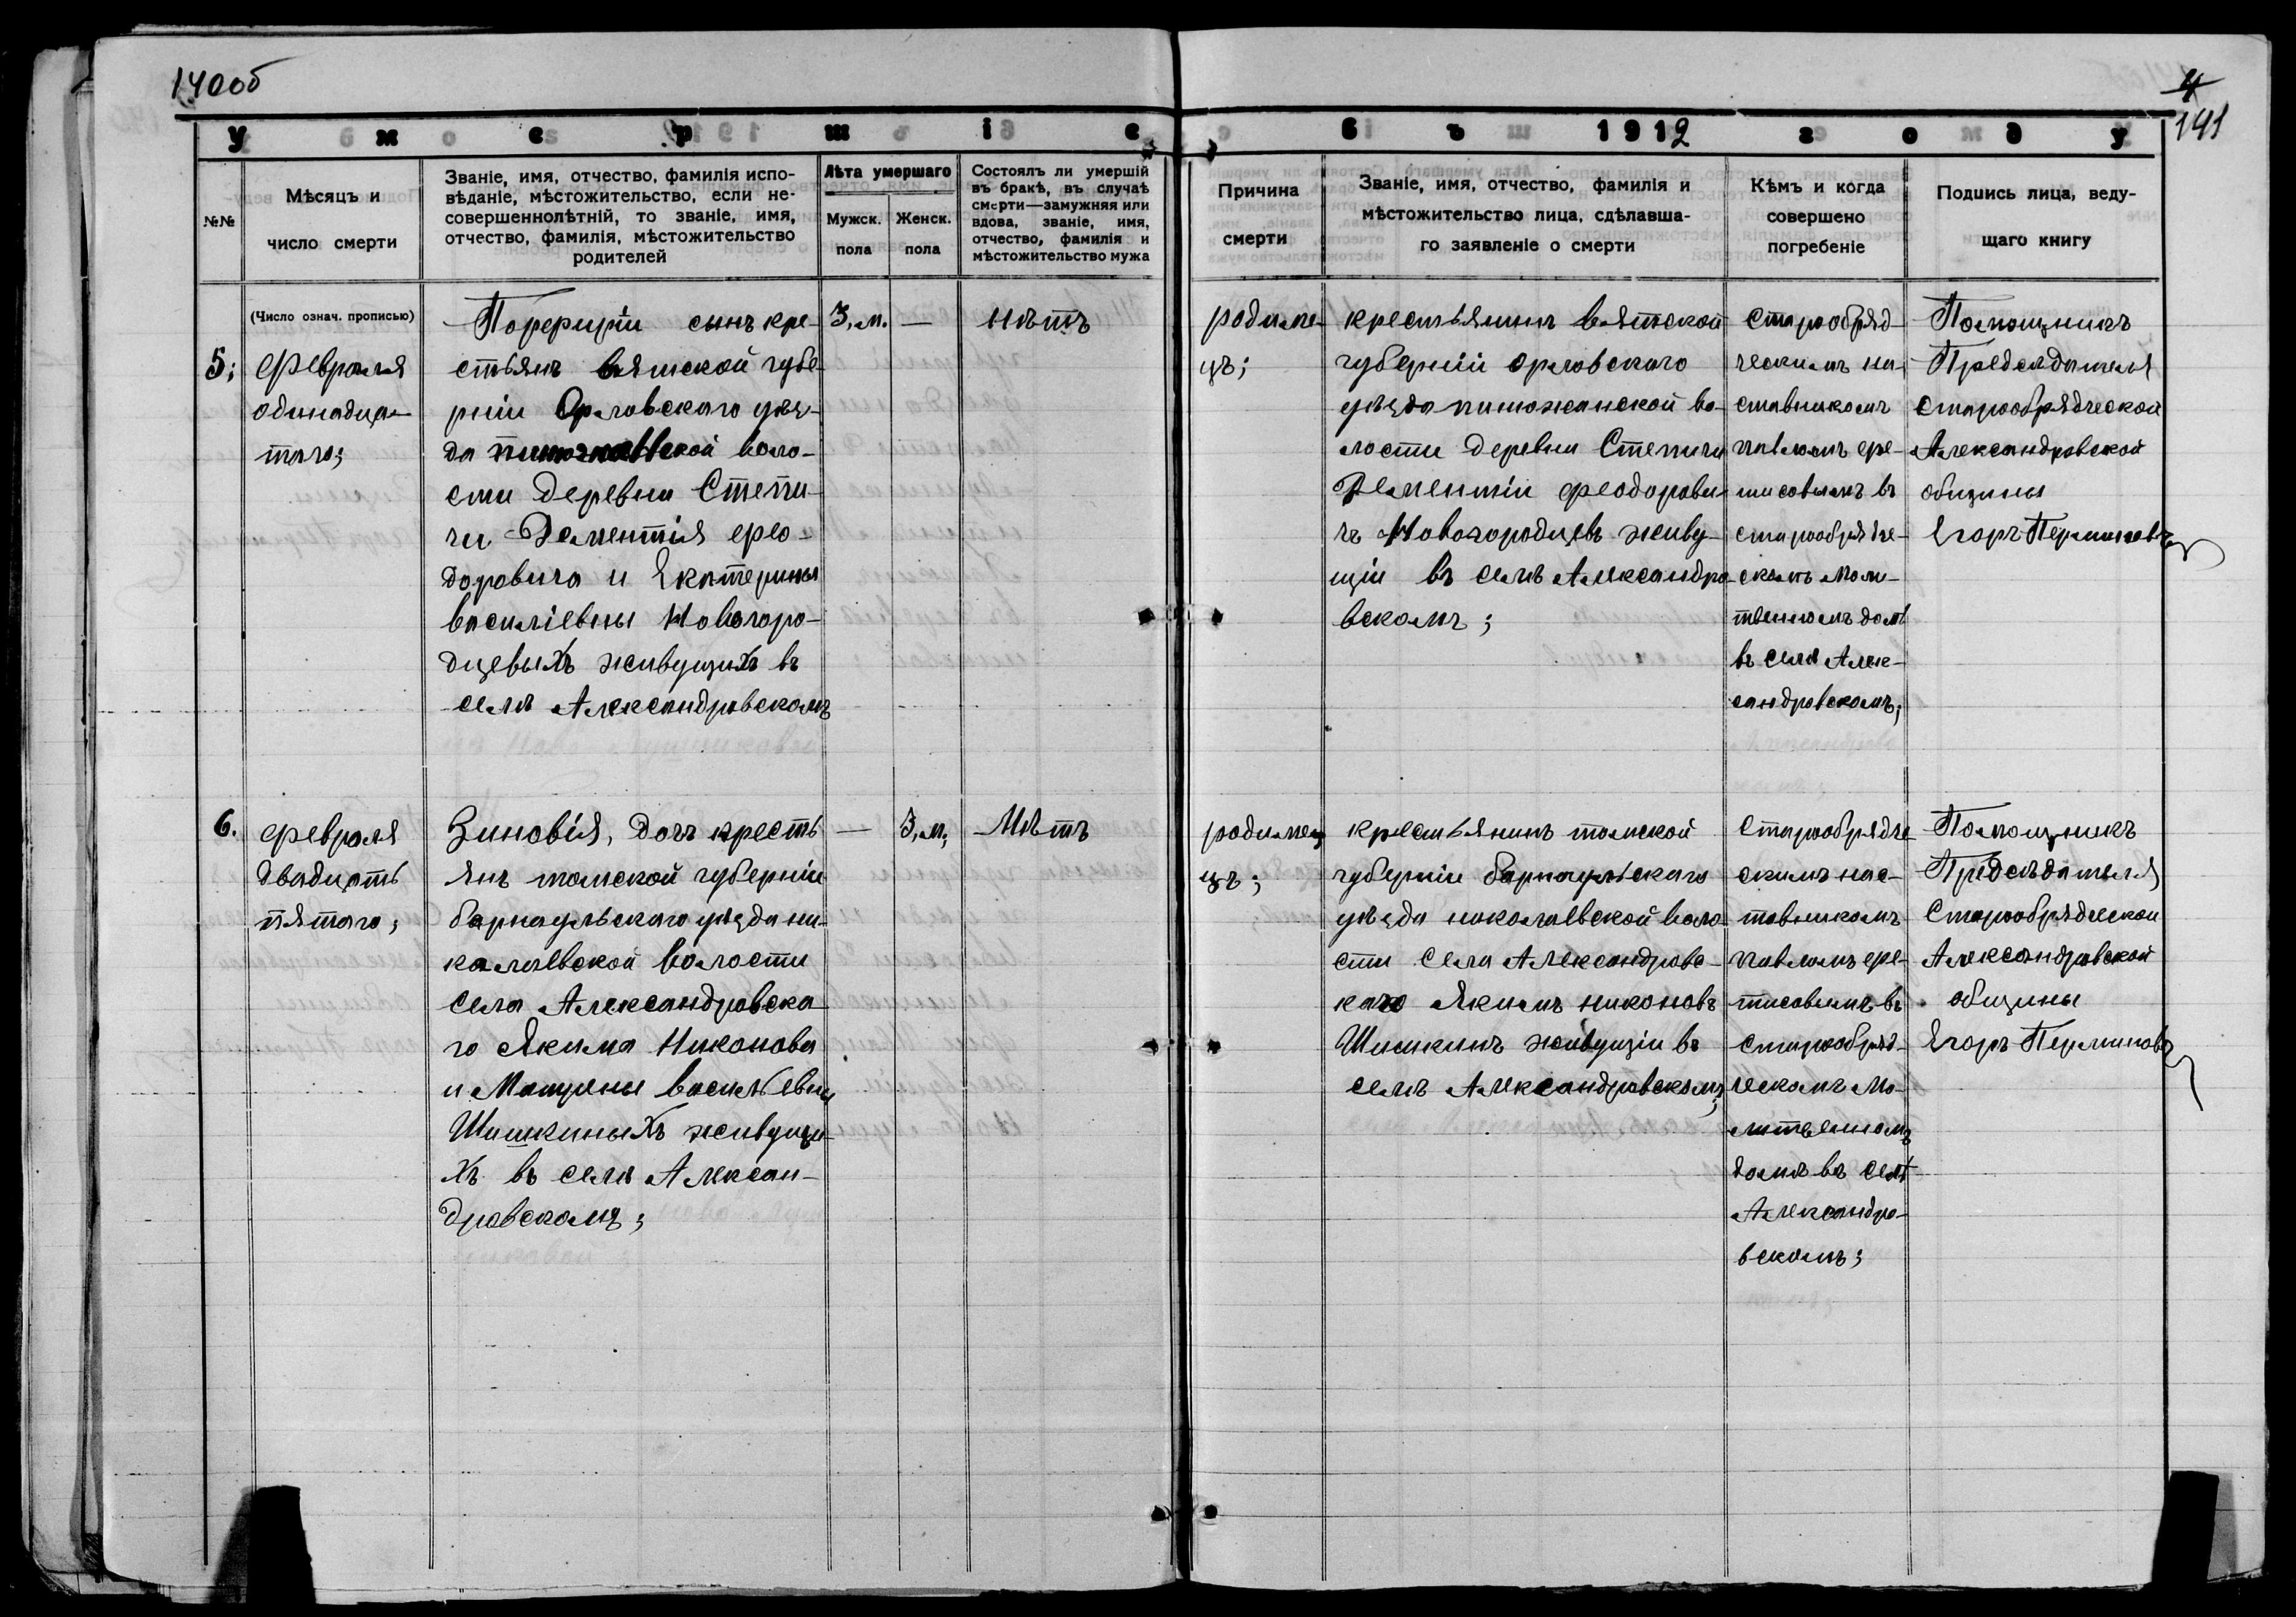 140об
4
141
Умершіе въ 1912 году
№№
Мѣсяцъ и
число смерти
Званіе, имя, отчество, фамилія испо-
вѣданіе, мѣстожительство, если не-
совершеннолѣтній, то званіе, имя,
отчество, фамилія, мѣстожительство
родителей
Лѣта умершаго
Мужск.
пола
Женск.
пола
Состоялъ ли умершій
въ бракѣ, въ случаѣ
смерти—замужняя или
вдова, званіе, имя,
отчество, фамилія и
мѣстожительство мужа
Причина
смерти
Званіе, имя, отчество, фамилія и
мѣстожительство лица, сдѣлавша-
го заявленіе о смерти
Кѣмъ и когда
совершено
погребеніе
Подпись лица, веду-
щаго книгу
(Число означ. прописью)
5;
февраля
одинадца-
таго;
Порфирій сынъ кре-
стьянъ вятской губе-
рніи Орловскаго уѣз-
да волo-
сти деревни Степи-
чи Дементія фео-
доровича и Екатерины
василіевны Новогоро-
дцевыхъ живущихъ въ
селѣ Александровскомъ
3,м.
—
нѣтъ
родиме-
цъ;
крестьянинъ вятской
губерніи орловскаго
уѣзда пишожанской во-
лости деревни Степичи
Дементій феодорови-
чъ Новогородцевъ живу-
щій въ селѣ Александро-
вскомъ;
старообряд-
ческимъ на-
ставникомъ
павломъ фе-
тисовымъ въ
старообрядче-
скомъ моли-
твенномъ домѣ
въ селѣ Алек-
сандровскомъ;
Помощникъ
Предсѣдателя
старообрядческой
Александровской
общины
Егоръ Перминовъ
6.
февраля
двадцать
пятаго;
Зиновія, дочь кресть
янъ томской губерніи
барнаульскаго уѣзда ни-
колаевской волости
села Александровска-
го Якима Никонова
и Матрены васильевны
Шишкиныхъ живущи-
хъ въ селѣ Алексан-
дровскомъ;
—
3,м,
Нѣтъ
родимец
цъ;
крестьянинъ томской
губерніи барнаульскаго
уѣзда николаевской воло-
сти села Александровс-
каго Якимъ никоновъ
Шишкинъ живущій въ
селѣ Александровскомъ;
старообрядче
скимъ нас-
тавникомъ
павломъ фе-
тисовымъ въ
старообряд-
ческомъ мо-
литвенномъ
домѣ въ селѣ
Александро-
вскомъ;
Помощникъ
Предсѣдателя
Старообрядческой
Александровской
общины
Егоръ Перминовъ